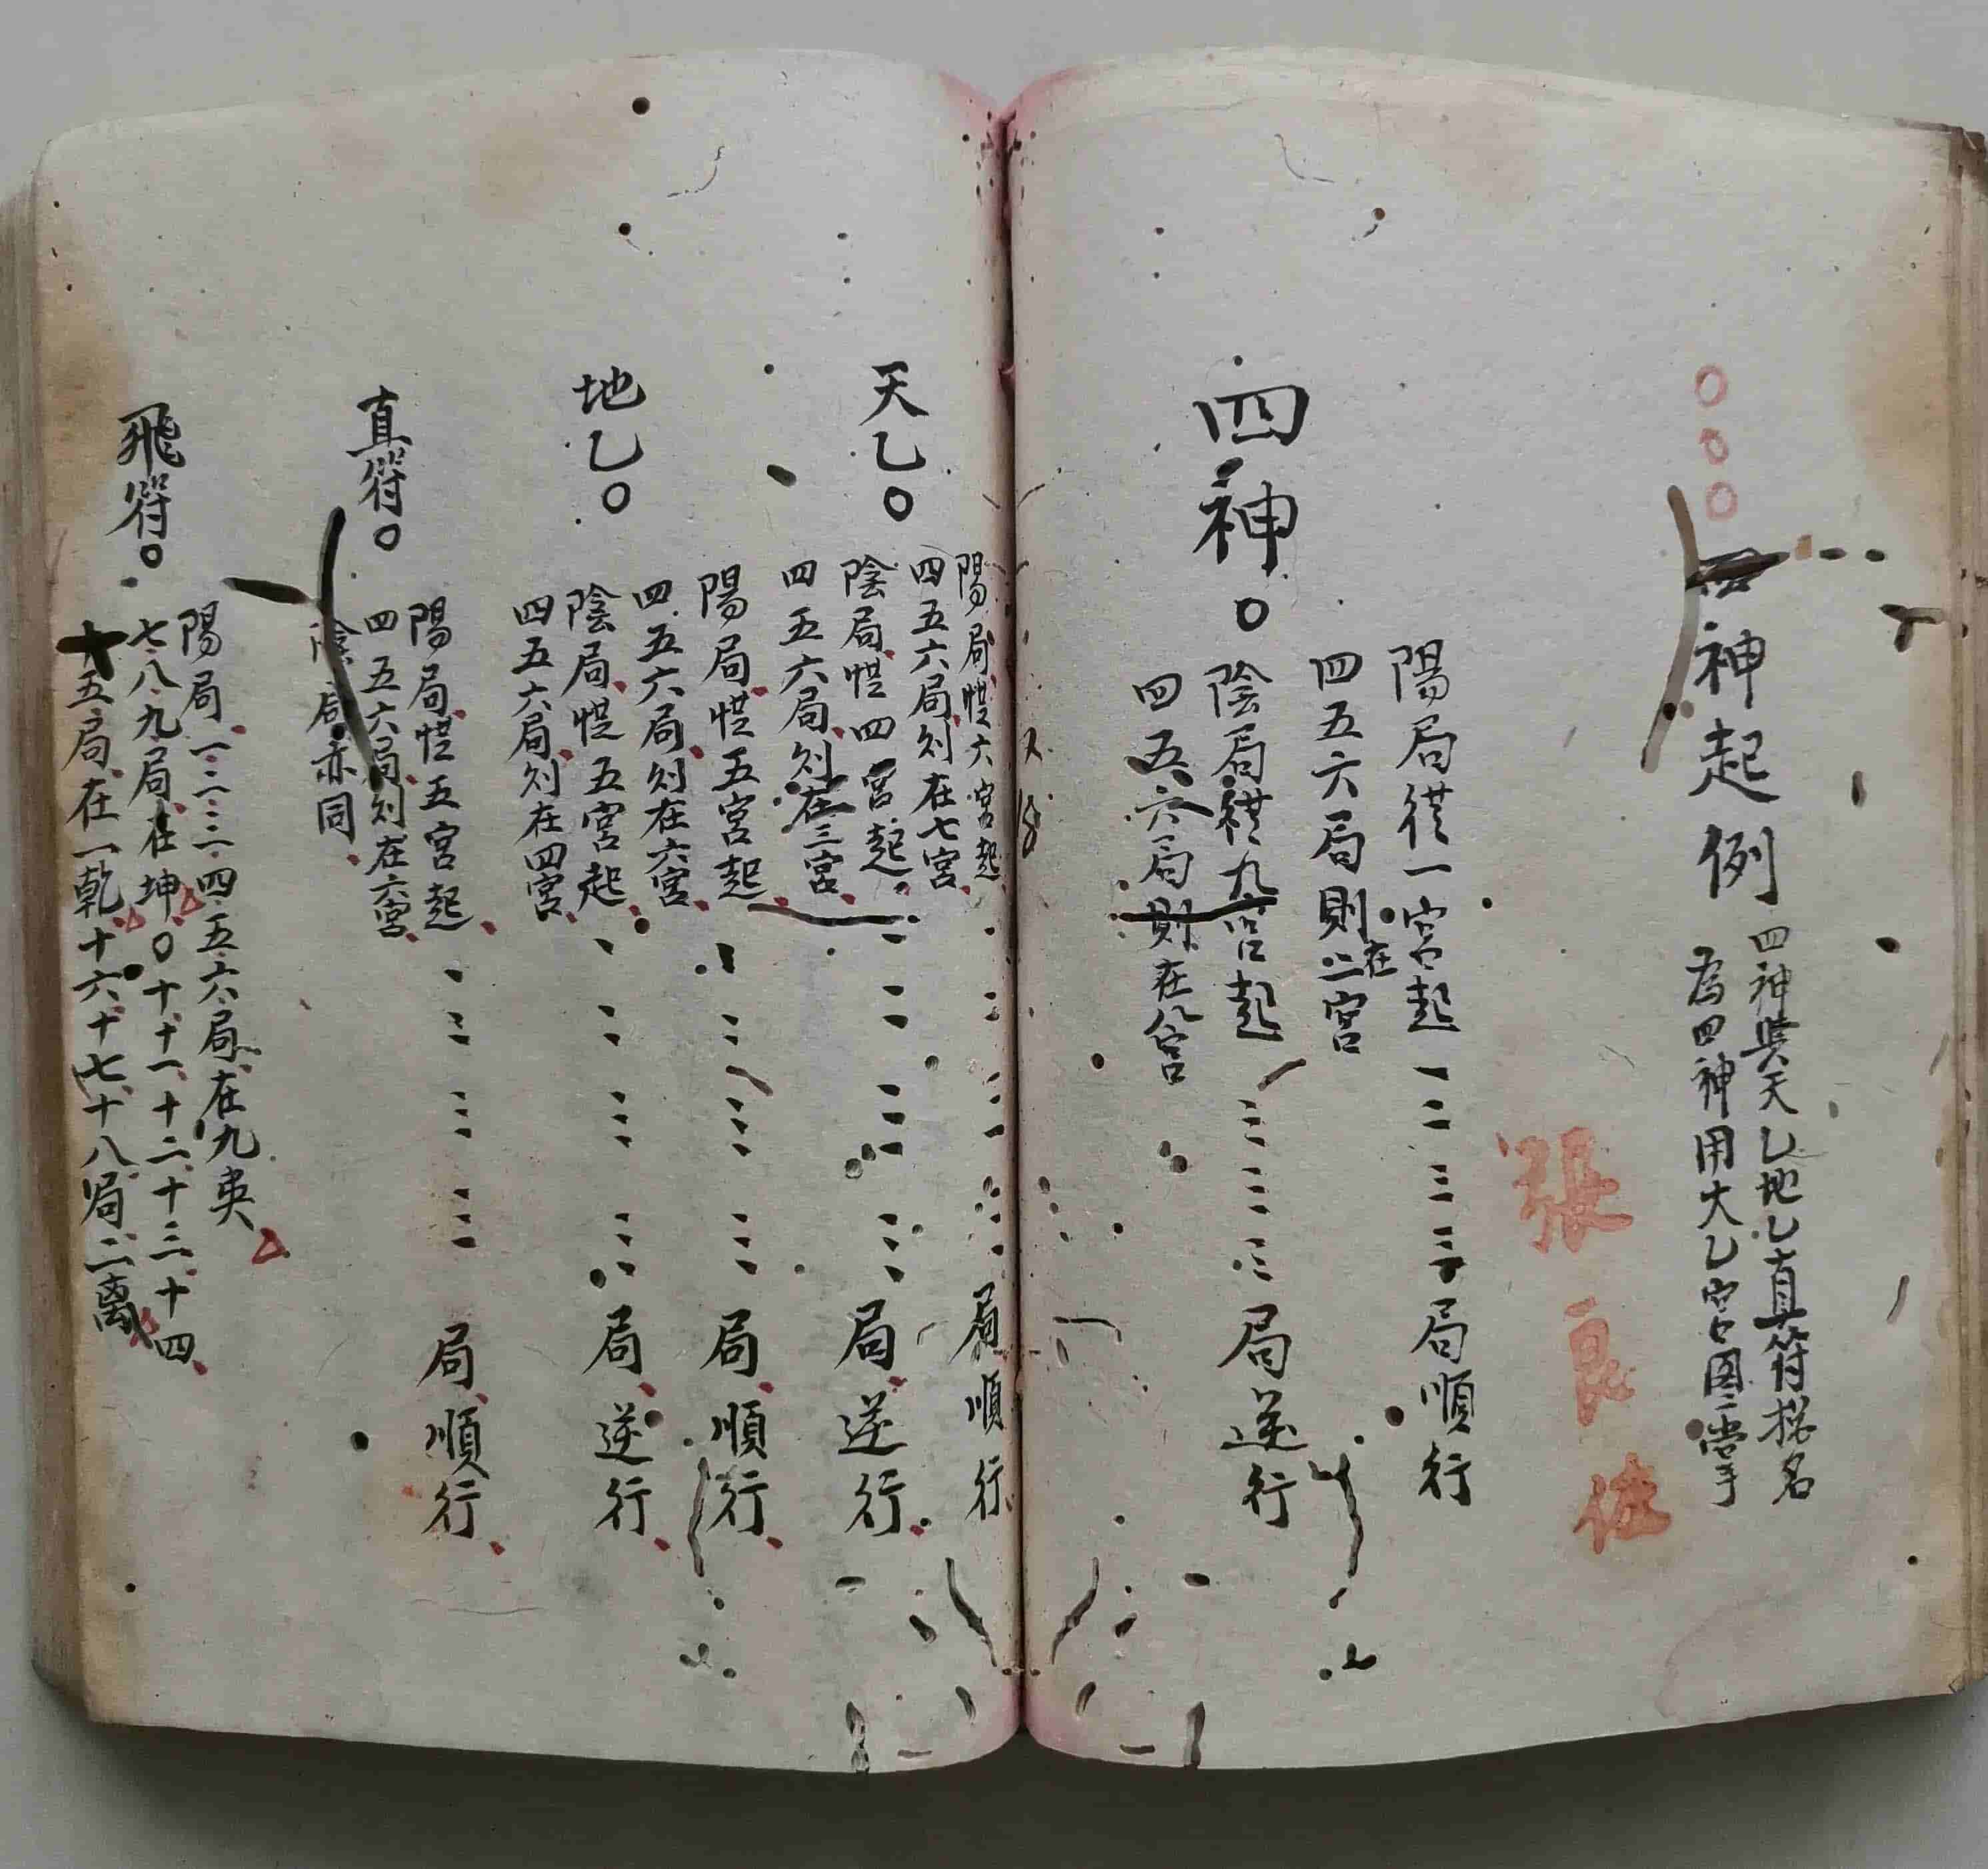 ○○○四神起例
四神與天乙地乙直符揔名
為四神用大乙宮圖掌
張良佐
四神。
陽局從一宮起一二三三局順行
四五六局則在二宮
陰局從九宮起三三三局逆行
四五六局則在八宮
天乙○
陽局從六宮起局順行
四五六局则在七宮
陰局從四宮起局逆行
四五六局则在三宮
地乙○
陽局從五宮起局順行
四五六局则在六宮
陰局從五宮起局逆行
四五六局则在四宮
真符○
陽局從五宮起局順行
四五六局则在六宮
陰局亦同
飛符○
陽局一二三四五六局在九英
七八九局在坤○十十一十二十三十四
十五局在一乾十六十七十八局二离